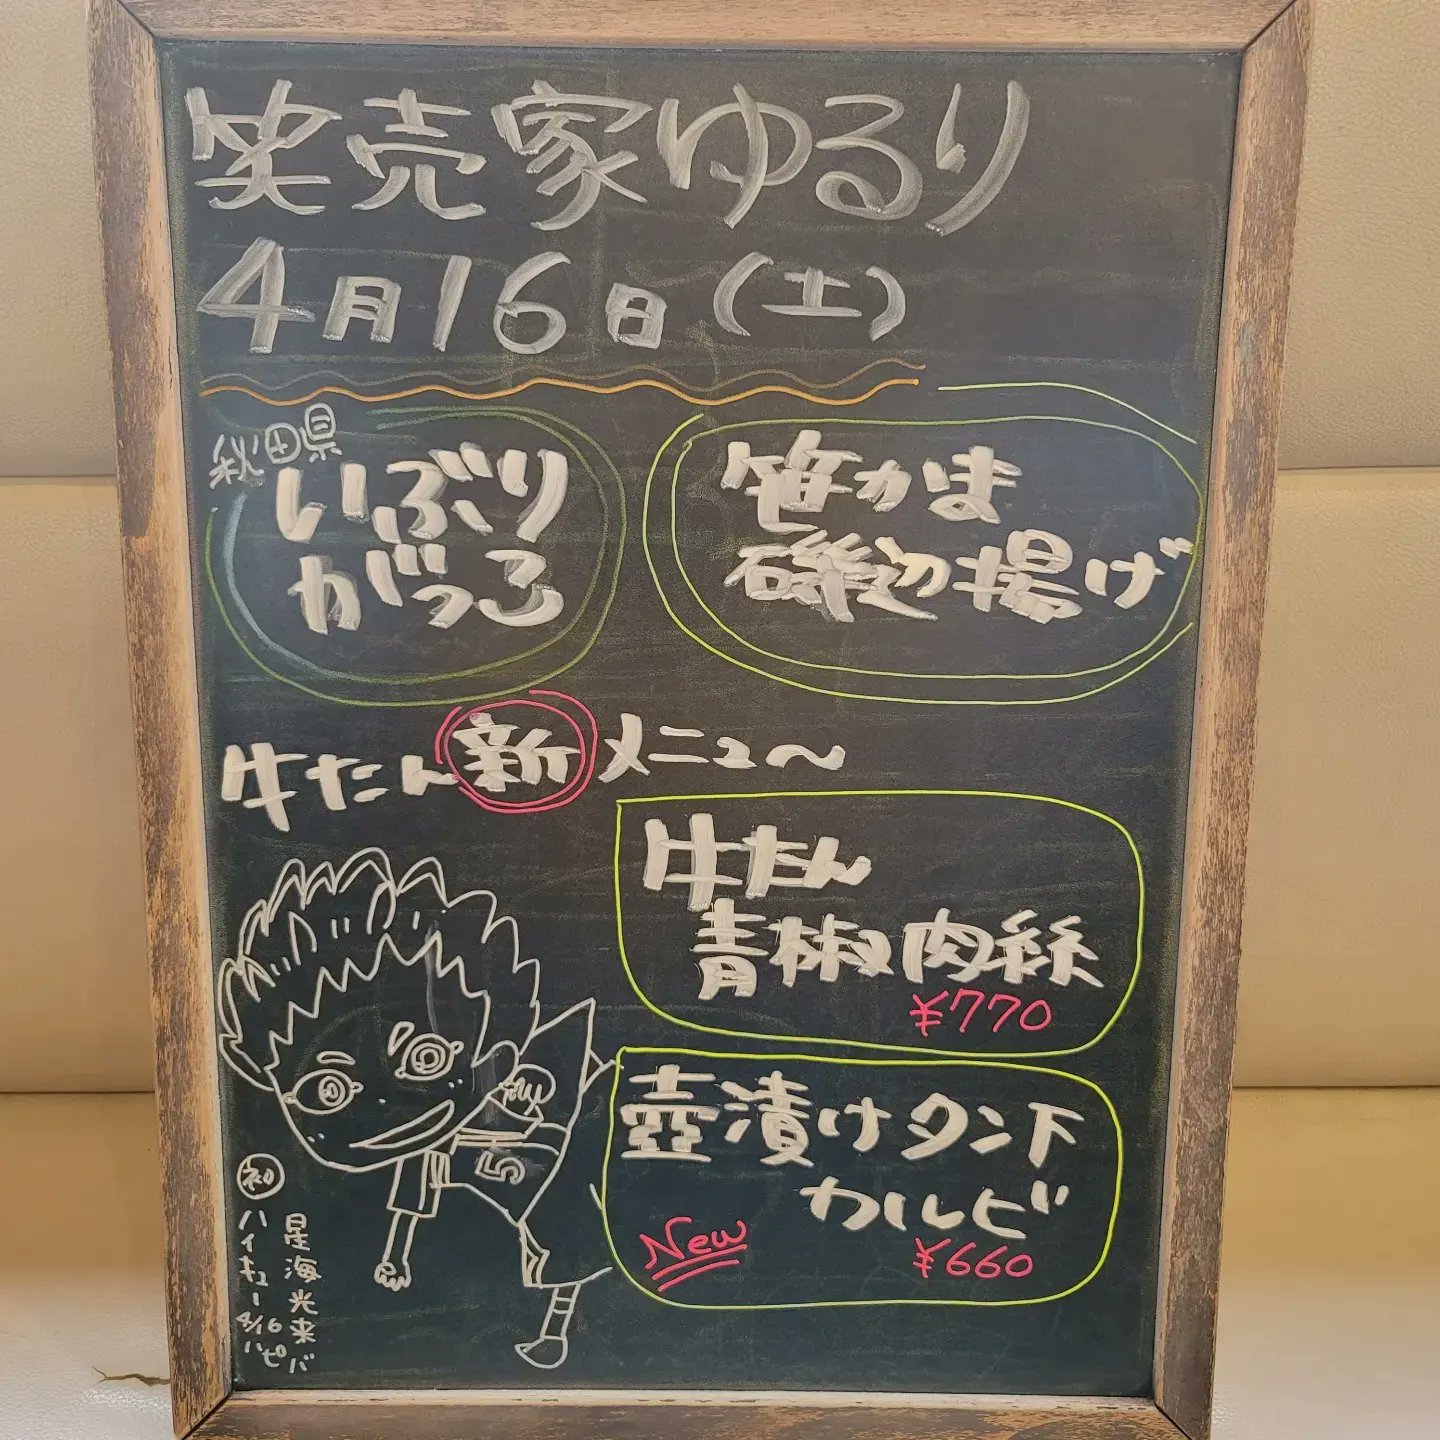 笑売家ゆるり
4月16日(土)
秋田県
いぶり
がっこ
笹かま
磯辺揚げ
牛たん新メニュ〜
牛たん
青椒肉絲
¥770
壺漬けタン下
カルビ
New
¥660
5
初
ハイキュー
4/16
ハピバ
星海光来